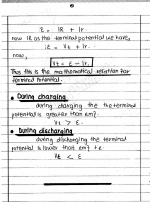 ε = IR + Ir.
now IR as the terminal potential we have,
ε = Vt + Ir.
now,
Vt = ε - Ir.
Thus this is the mathematical relation for
terminal potential.
During charging
during charging the the terminal
potential is greater than emf.
Vt > ε.
During discharging
during discharging the terminal
potential is lower than emf i.e.
Vt < ε